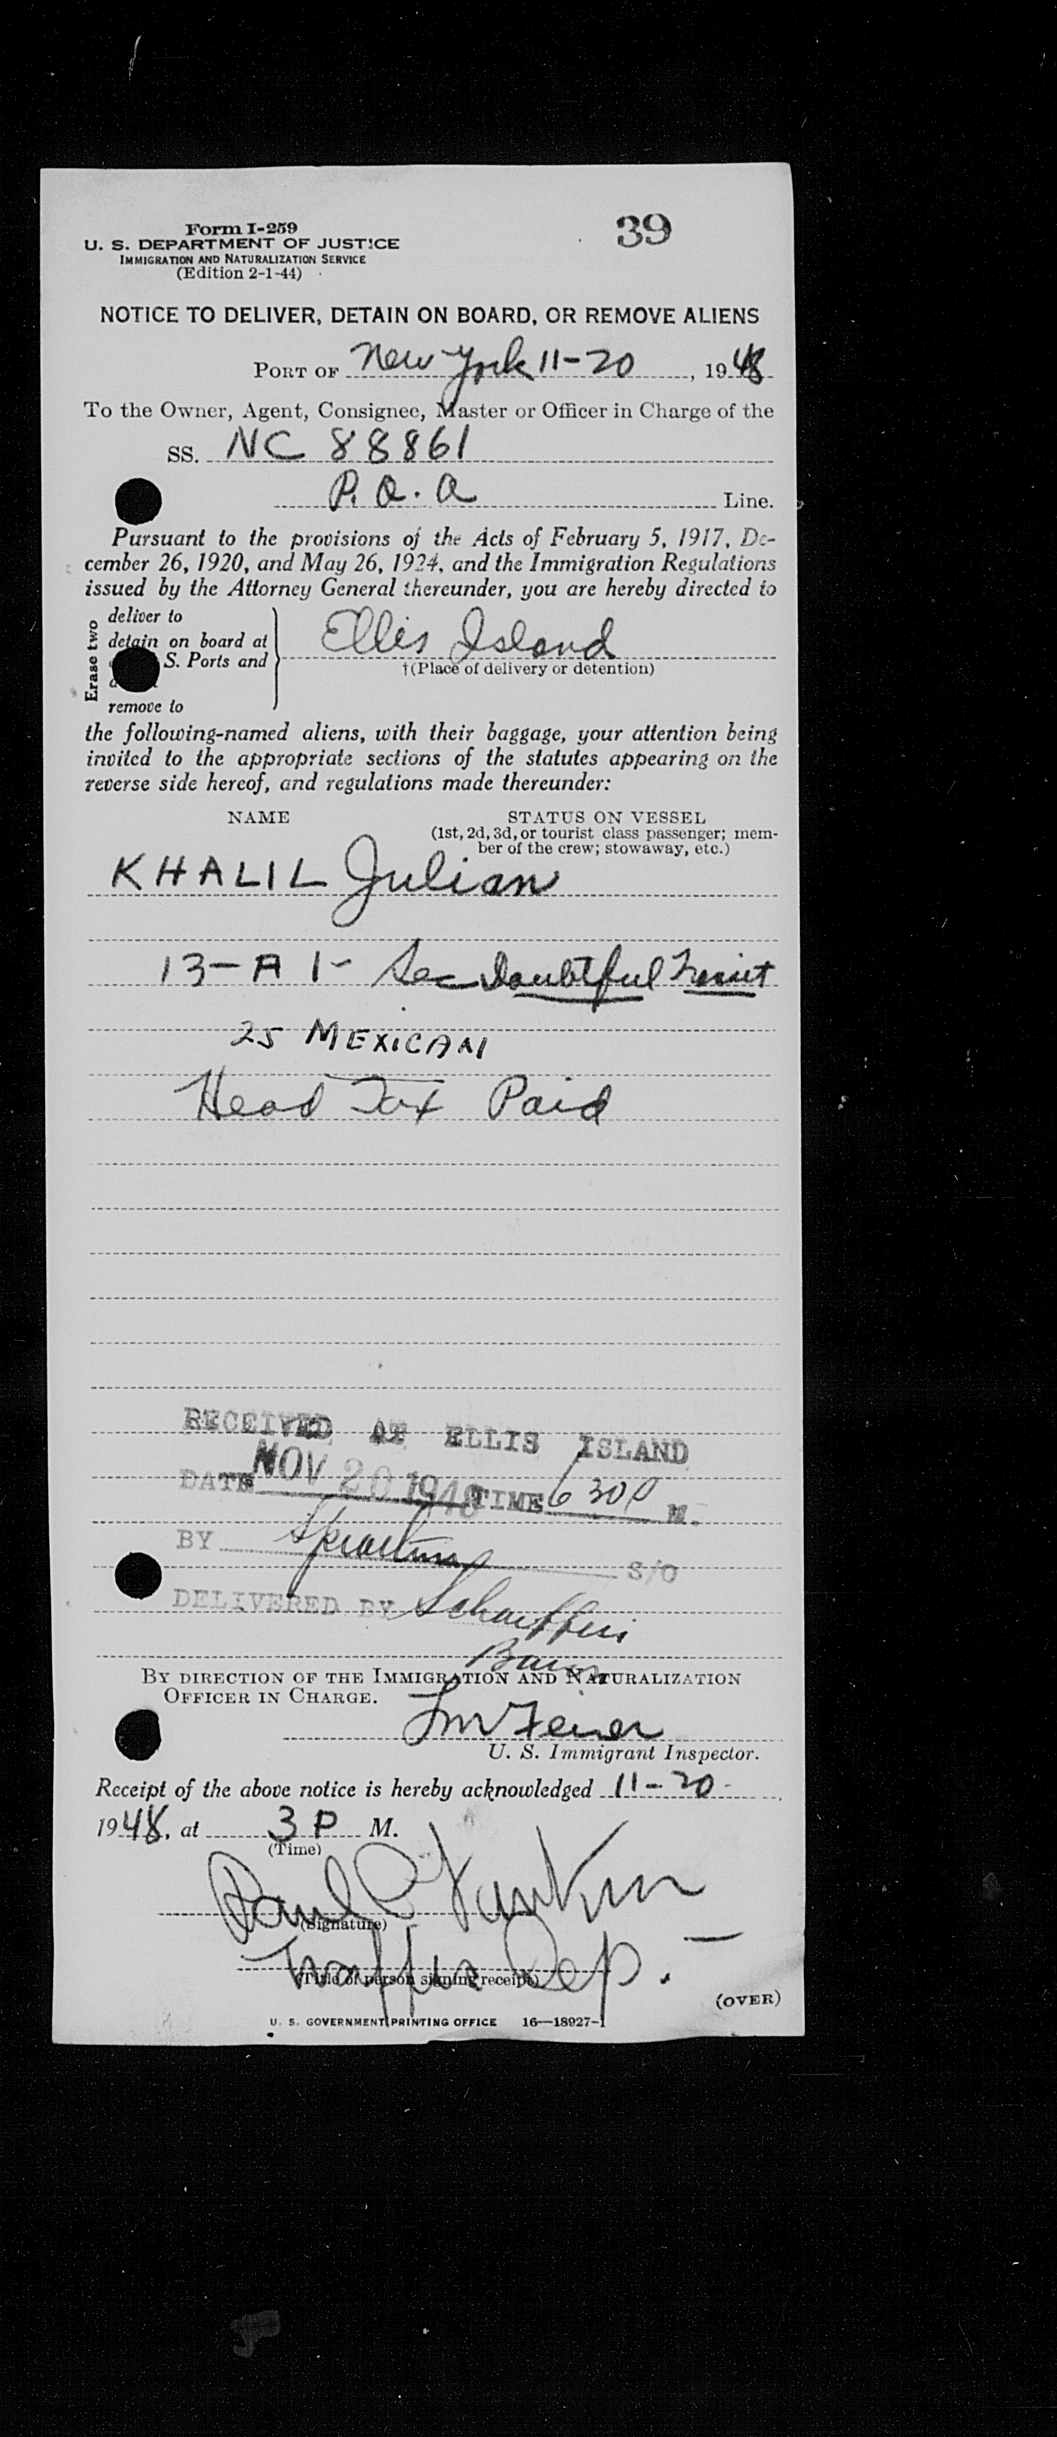 Form I-259
39
U. S. DEPARTMENT OF JUSTICE
IMMIGRATION AND NATURALIZATION SERVICE
(Edition 2-1-44)
NOTICE TO DELIVER, DETAIN ON BOARD, OR REMOVE ALIENS
PORT OF New York 11-20, 1948
To the Owner, Agent, Consignee, Master or Officer in Charge of the
SS. NC 88861
P. A. A Line.
Pursuant to the provisions of the Acts of February 5, 1917, De-
cember 26, 1920, and May 26, 1924, and the Immigration Regulations
issued by the Attorney General thereunder, you are hereby directed to
Erase two
deliver to
detain on board at
S. Ports and
remove to
Ellis Island
†(Place of delivery or detention)
the following-named aliens, with their baggage, your attention being
invited to the appropriate sections of the statutes appearing on the
reverse side hereof, and regulations made thereunder:
NAME
STATUS ON VESSEL
(1st, 2d, 3d, or tourist class passenger; mem-
ber of the crew; stowaway, etc.)
KHALIL Julian
13-A 1- Sec Doubtful Transit
25 MEXICAN
Head Tax Paid
RECEIVED AT ELLIS ISLAND
DATE NOV 20 1948 TIME 6 30 P M.
BY S/O
DELIVERED BY
BY DIRECTION OF THE IMMIGRATION AND NATURALIZATION
OFFICER IN CHARGE.
U. S. Immigrant Inspector.
Receipt of the above notice is hereby acknowledged 11-20-
1948, at 3 P M.
(Time)
Paul
(Signature)
Traffic Rep.
(Title of person signing receipt)
(OVER)
U. S. GOVERNMENT PRINTING OFFICE 16—18927-1